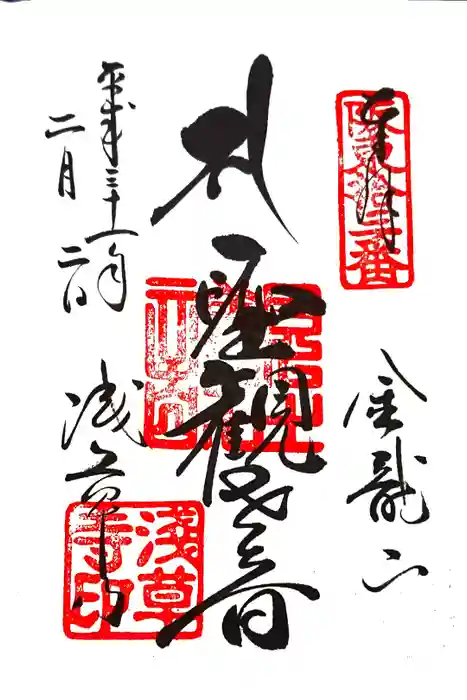 奉拝
坂東拾三番
金龍山
聖観世音
平成三十一年
二月二日
浅草寺
浅草寺印